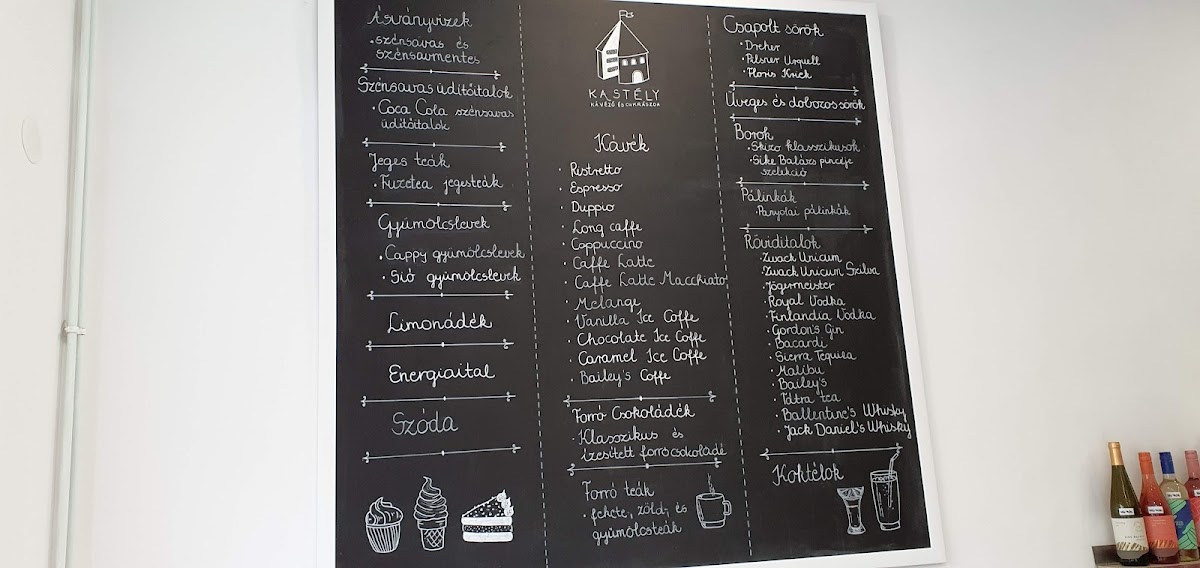 Ásványvizek
• szénsavas és
szénsavmentes
Szénsavas üdítőitalok
• Coca Cola szénsavas
üdítőitalok
Jeges teák
• Fuzetea jegesteák
Gyümölcslevek
• Cappy gyümölcslevek
• Sió gyümölcslevek
Limonádék
Energiaital
Szóda
KASTÉLY
KÁVÉZÓ ÉS CUKRÁSZDA
Kávék
• Ristretto
• Espresso
• Duppio
• Long caffe
• Cappuccino
• Caffe Latte
• Caffe Latte Macchiato
• Melange
• Vanilla Ice Coffe
• Chocolate Ice Coffe
• Caramel Ice Coffe
• Bailey's Coffe
Forró Csokoládék
• Klasszikus és
ízesített forrócsokoládé
Forró teák
• fekete, zöld, és
gyümölcsteák
Csapolt sörök
• Dreher
• Pilsner Urquell
• Floris Kriek
Üveges és dobozos sörök
Borok
• Skizo klasszikusok
• Sike Balázs pincéje
szelekció
Pálinkák
• Panyolai pálinkák
Röviditalok
• Zwack Unicum
• Zwack Unicum Szilva
• Jägermeister
• Royal Vodka
• Finlandia Vodka
• Gordon's Gin
• Bacardi
• Sierra Tequila
• Malibu
• Bailey's
• Tátra tea
• Ballentine's Whisky
• Jack Daniel's Whisky
Koktélok